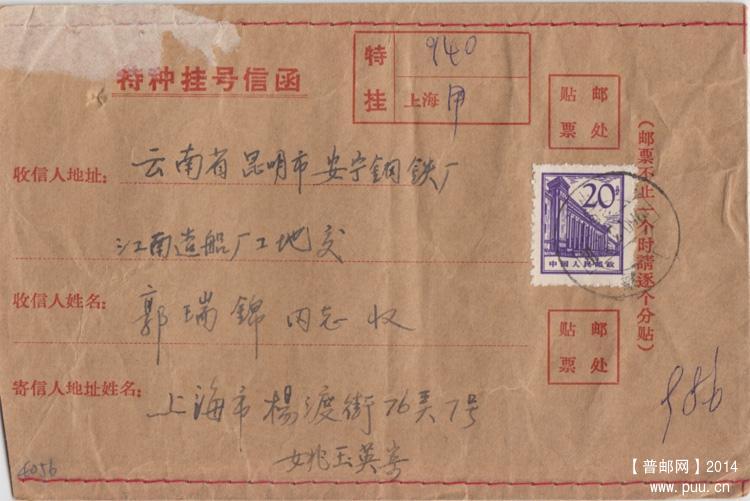 特种挂号信函
特 940
挂 上海 甲
贴 邮
票 处
收信人地址: 云南省昆明市安宁钢铁厂
江南造船厂工地交
20分
中国人民邮政
(邮票不止一个时請逐个分贴)
收信人姓名: 郭瑞錦同志收
贴 邮
票 处
寄信人地址姓名: 上海市楊渡街76弄7号
姚玉英寄
956
4056
【普邮网】2014
www.puu.cn